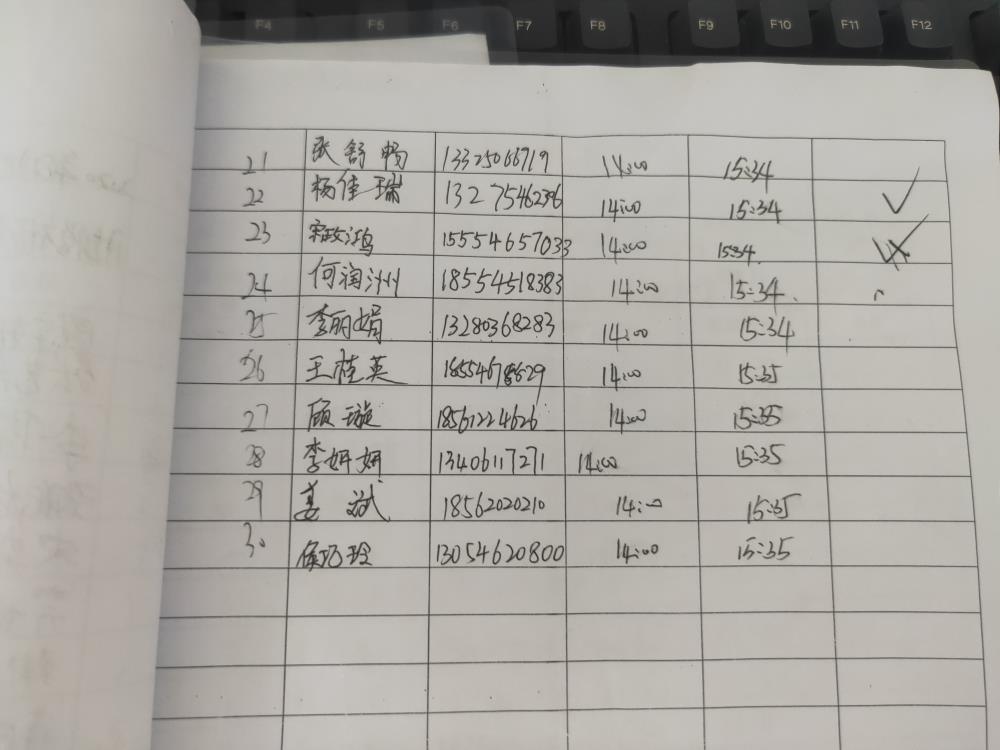 F4 F5 F6 F7 F8 F9 F10 F11 F12
21 张舒畅 13325066719 14:00 15:34
22 杨佳瑞 13275462396 14:00 15:34 √
23 宋政鸿 15554657033 14:00 15:34
24 何润洲 18554518383 14:00 15:34
25 李丽娟 13280368283 14:00 15:34
26 王桂英 14:00 15:35
27 顾璇 18561224626 14:00 15:35
28 李妍妍 13406117271 14:00 15:35
29 姜斌 18562020210 14:00 15:35
30 侯巧玲 13054620800 14:00 15:35